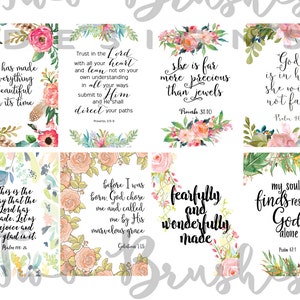 has made
everything
beautiful
its time
Trust in the Lord
with all your
heart and lean not on your
own understanding
in all your ways
submit to Him
and He shall
direct your paths
Proverbs 3:5-6
she is far
more precious
than jewels
Proverbs 31:10
God is
will
not fa
Psalm
this is the
day that the
Lord has
made. Let us
rejoice and
be glad in it.
Psalm 118:24
before I was
born, God chose
me and called
me by His
marvelous grace
Galatians 1:15
fearfully
and
wonderfully
made
my soul
finds rest
God
alone
Psalm 62:1